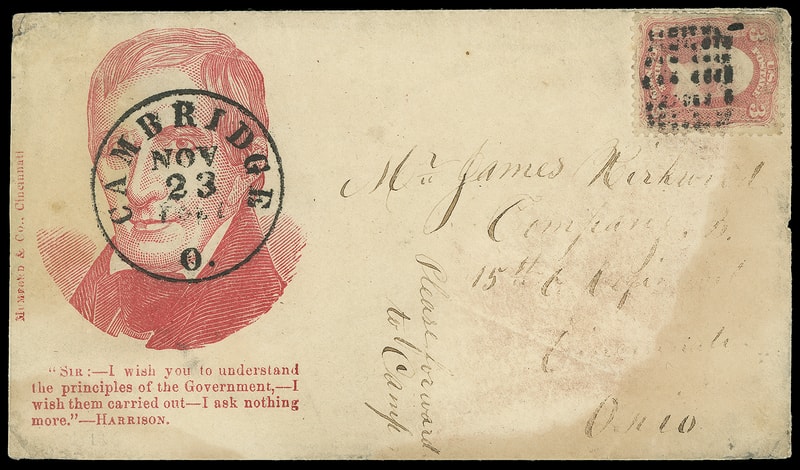 CAMBRIDGE
NOV
23
O.
& Co., Cincinnati
"SIR:—I wish you to understand
the principles of the Government,—I
wish them carried out—I ask nothing
more."—HARRISON.
3 3
U.S.
Mr James
Company
15th
Ohio
Please forward
to Camp